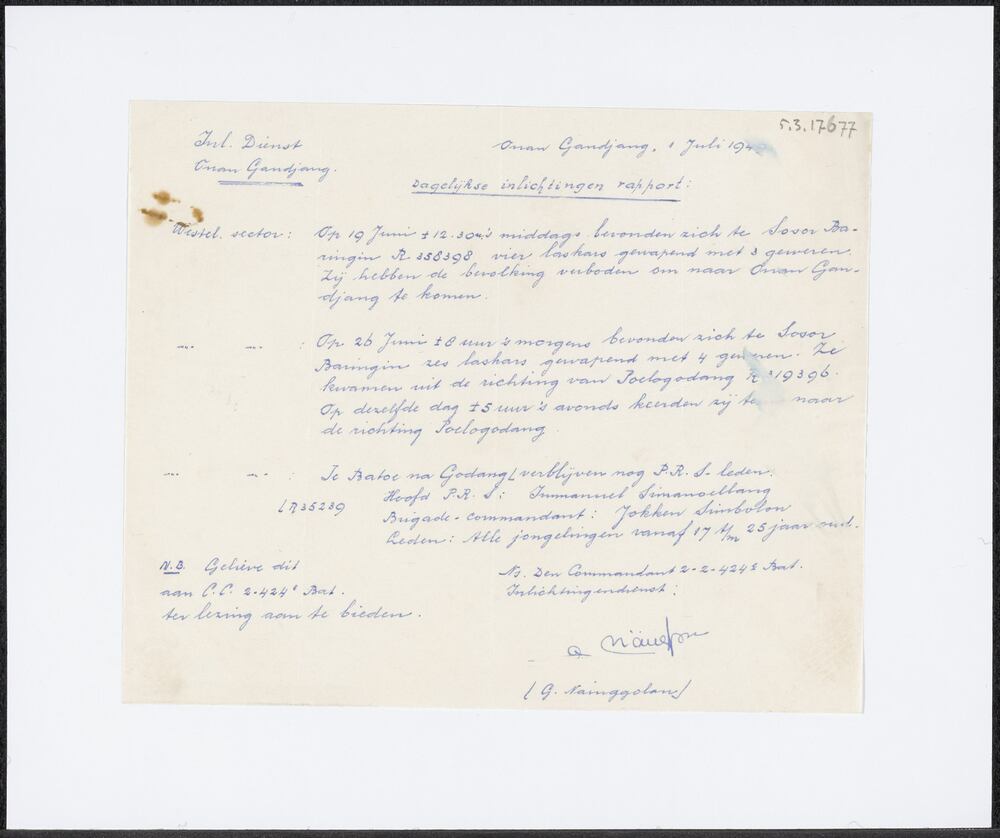 5.3.17677
Inl. Dienst
Onan Gandjang, 1 Juli 194
Onan Gandjang.
Dagelijkse inlichtingen rapport:
Westel. sector: Op 19 Juni ± 12.30 u's middags bevonden zich te Sosor Ba-
ringin R 358398 vier laskars gewapend met 3 geweren.
Zij hebben de bevolking verboden om naar Onan Gan-
djang te komen.
„ „ : Op 26 Juni ± 8 uur 's morgens bevonden zich te Sosor
Baringin zes laskars gewapend met 4 geweren. Ze
kwamen uit de richting van Poelogodang R 319396.
Op dezelfde dag ± 5 uur 's avonds keerden zij naar
de richting Poelogodang.
„ „ : Te Batoe na Godang / verblijven nog P.R.S-leden.
/ R35239
Hoofd P.R.S: Immanuel Simanoellang
Brigade-commandant: Jokken Simbolon
Leden: Alle jongelingen vanaf 17 t/m 25 jaar oud.
N.B. Gelieve dit
aan C.C. 2-424e Bat.
ter lezing aan te bieden.
Ns. Den Commandant 2-2-424e Bat.
Inlichtingendienst:
(G. Nainggolan)